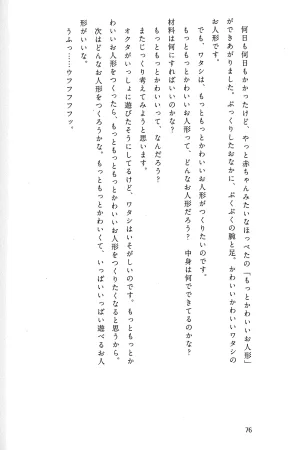 何日も何日もかかったけど、やっと赤ちゃんみたいなほっぺたの「もっとかわいいお人形」
ができあがりました。ぷっくりしたおなかに、ぷくぷくの腕と足。かわいいかわいいワタシの
お人形です。
でも、ワタシは、もっともっとかわいいお人形がつくりたいのです。
もっともっとかわいいお人形って、どんなお人形だろう？　中身は何でできてるのかな？
材料は何にすればいいのかな？
もっともっとかわいいって、なんだろう？
またじっくり考えてみようと思います。
オクタがいっしょに遊びたそうにしてるけど、ワタシはいそがしいのです。もっともっとか
わいいお人形をつくったら、もっともっともっとかわいいお人形をつくりたくなると思うから。
次はどんなお人形をつくろうかな。もっともっとかわいくて、いっぱいいっぱい遊べるお人
形がいいな。
うふっ……ウフフフフフッ。
76